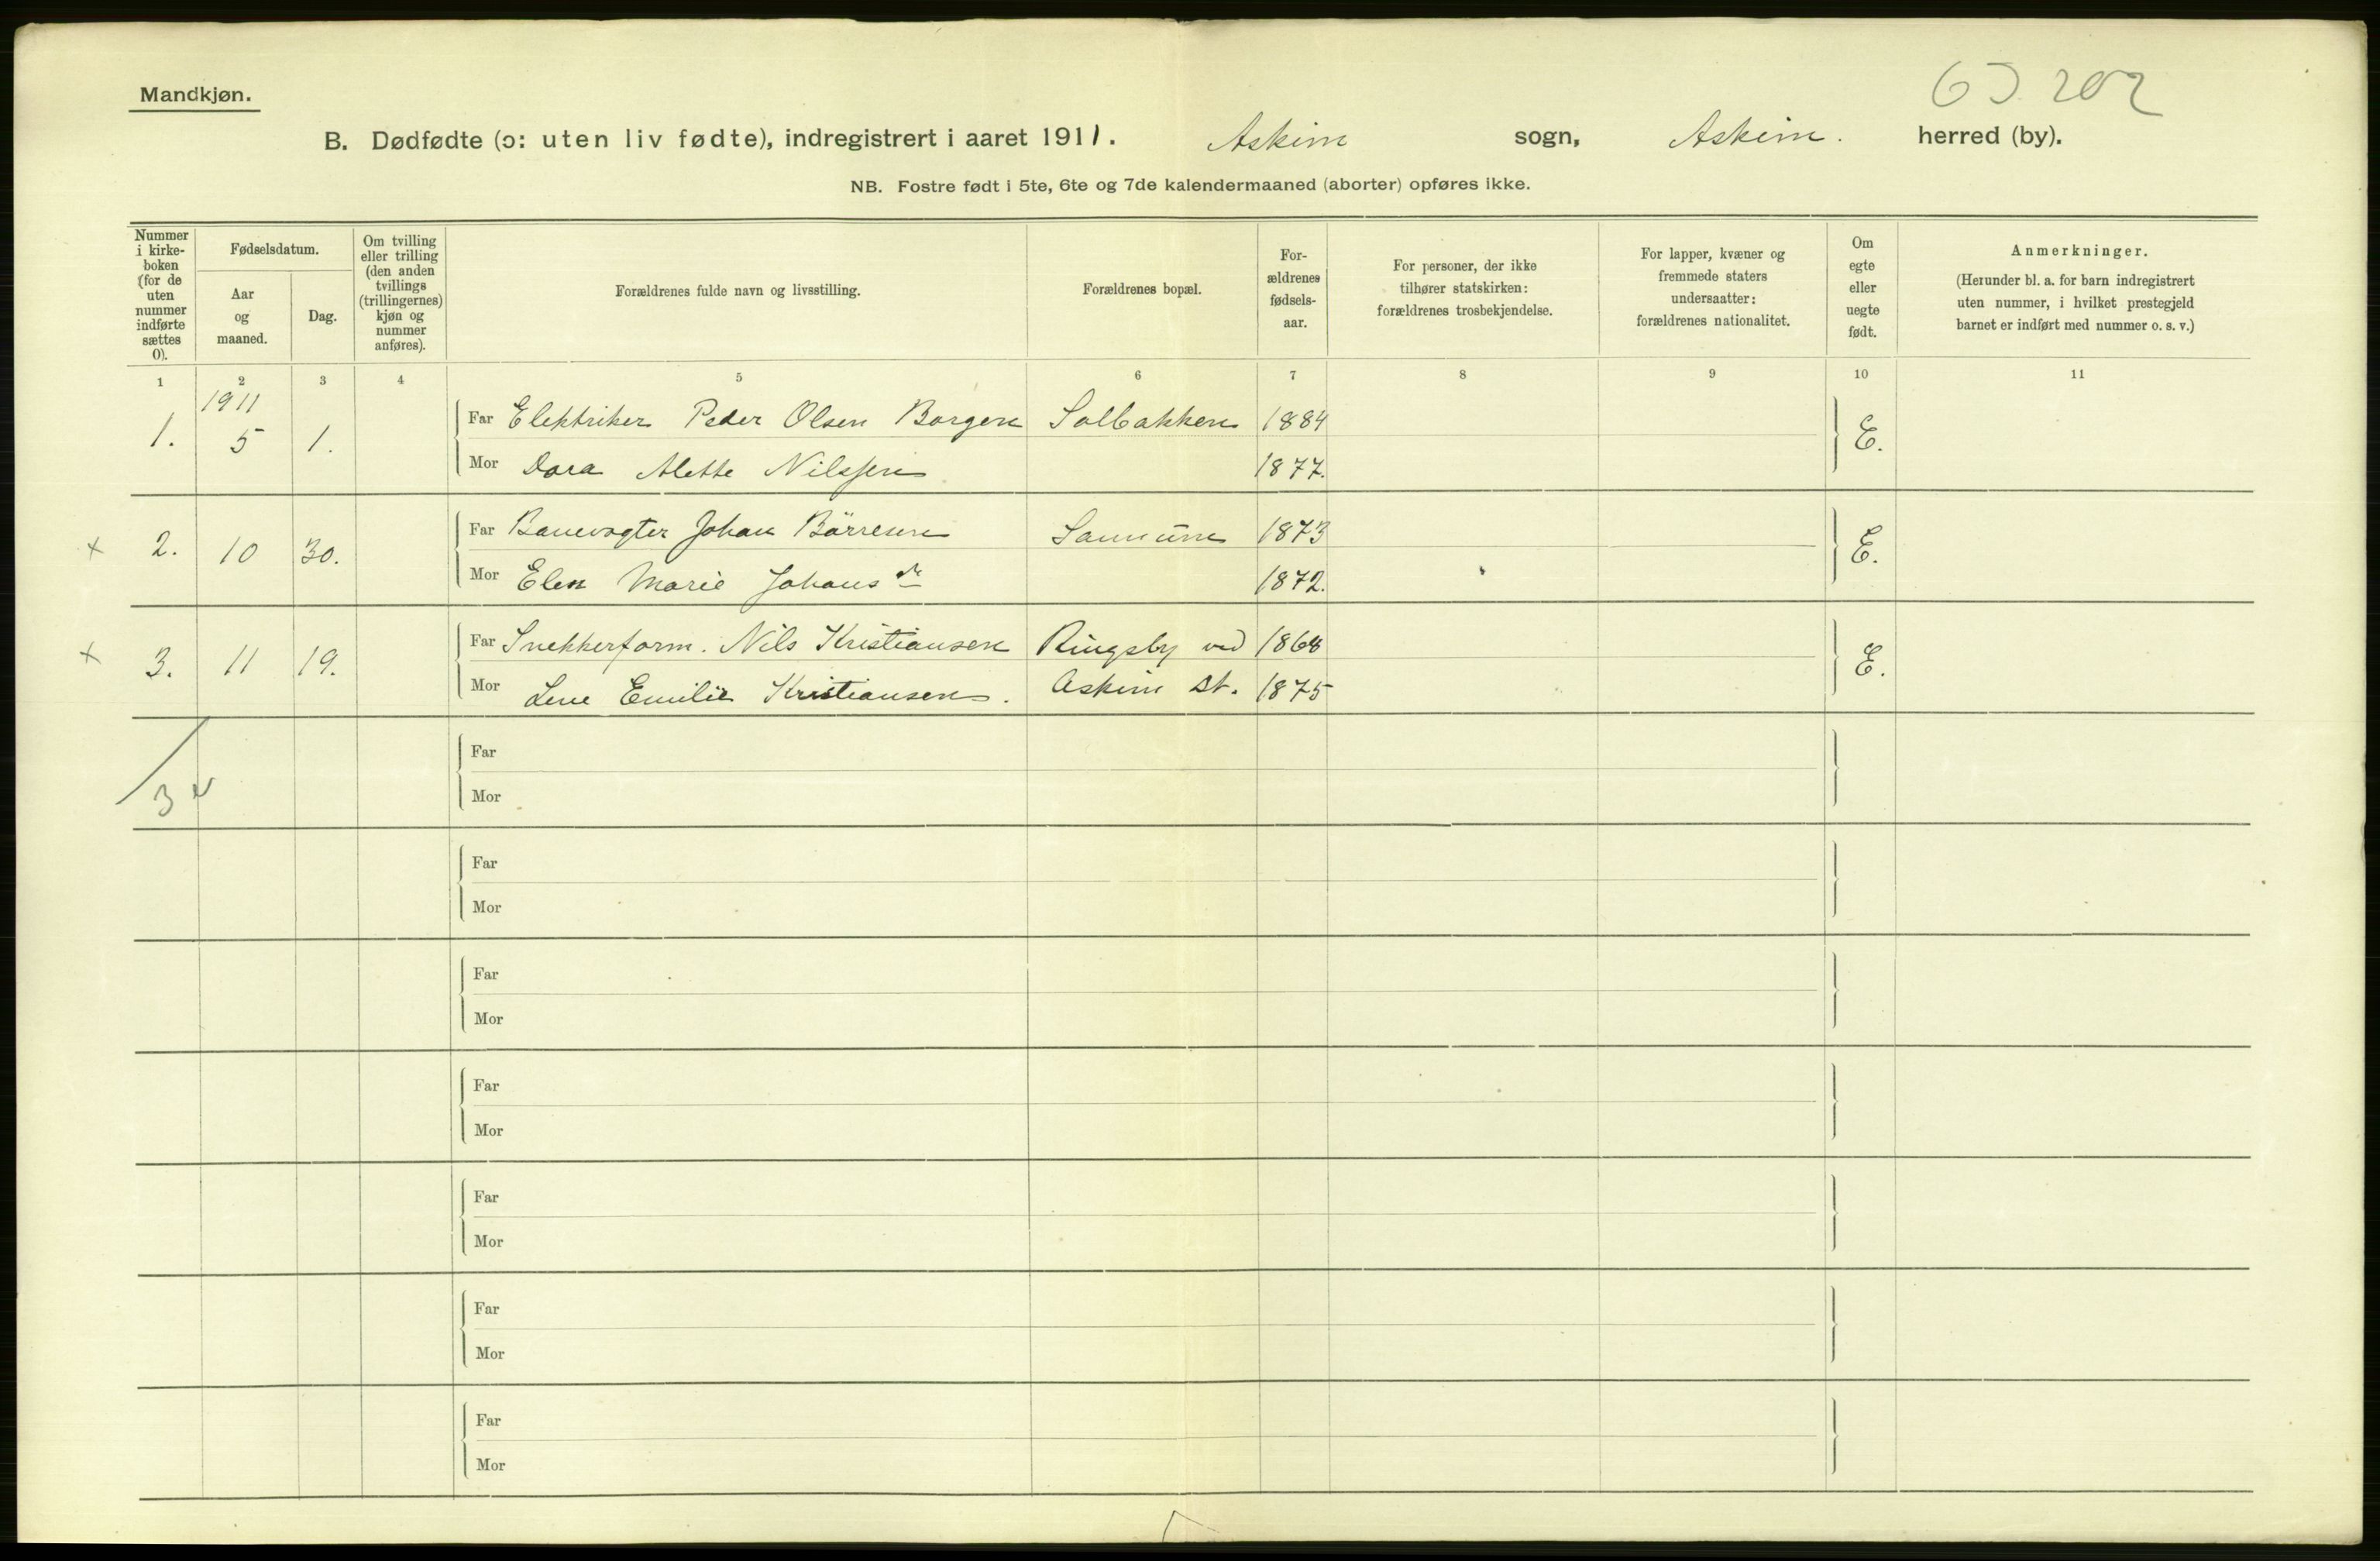 Mandkjøn.
202
B. Dødfødte (ɔ: uten liv fødte), indregistrert i aaret 1911. Askim sogn, Askim. herred (by).
NB. Fostre født i 5te, 6te og 7de kalendermaaned (aborter) opføres ikke.
Nummer i kirke-boken (for de uten nummer indførte sættes 0).
Fødselsdatum.
Aar og maaned.
Dag.
Om tvilling eller trilling (den anden tvillings (trillingernes) kjøn og nummer anføres).
Forældrenes fulde navn og livsstilling.
Forældrenes bopæl.
For-ældrenes fødsels-aar.
For personer, der ikke tilhører statskirken: forældrenes trosbekjendelse.
For lapper, kvæner og fremmede staters undersaatter: forældrenes nationalitet.
Om egte eller uegte født.
Anmerkninger.
(Herunder bl. a. for barn indregistrert uten nummer, i hvilket prestegjeld barnet er indført med nummer o. s. v.)
1 2 3 4 5 6 7 8 9 10 11
1911
1. 5 1. Far Elektriker Peder Olsen Borgen Solbakken 1884 E.
Mor Dora Alette Nilssen 1877.
+ 2. 10 30. Far Banevogter Johan Börresen 1873 E.
Mor Elen Marie Johansdr 1872.
+ 3. 11 19. Far Snekkerform. Nils Kristiansen Ringsby ved 1868 E.
Mor Lene Emilie Kristiansen. Askim St. 1875
Far
3 Mor
Far
Mor
Far
Mor
Far
Mor
Far
Mor
Far
Mor
Far
Mor